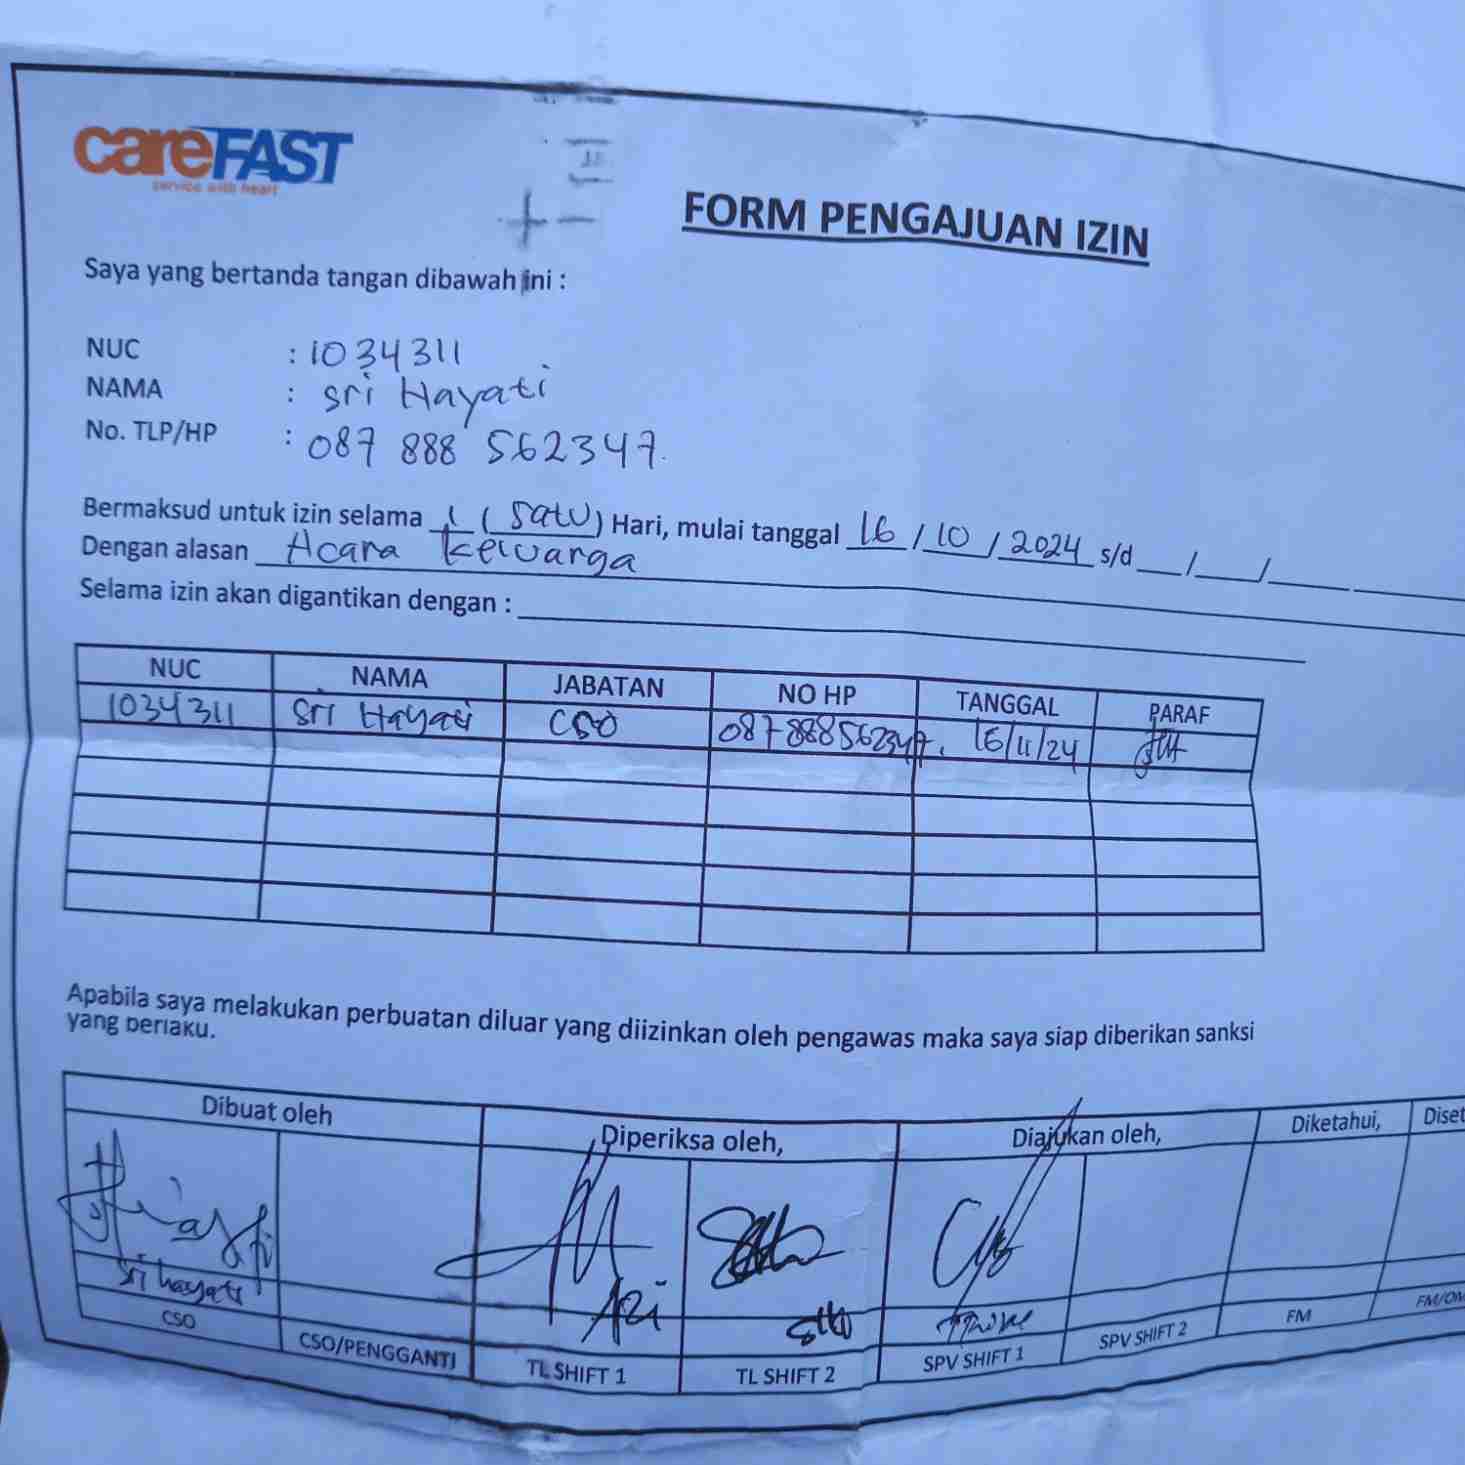 careFAST
service with heart
FORM PENGAJUAN IZIN
Saya yang bertanda tangan dibawah ini :
NUC : 1034311
NAMA : Sri Hayati
No. TLP/HP : 087 888 562347.
Bermaksud untuk izin selama 1 (Satu) Hari, mulai tanggal 16 / 10 / 2024 s/d __ / __ / __
Dengan alasan Acara Keluarga
Selama izin akan digantikan dengan :
NUC NAMA JABATAN NO HP TANGGAL PARAF
1034311 Sri Hayati CSO 087888562347. 16/11/24
Apabila saya melakukan perbuatan diluar yang diizinkan oleh pengawas maka saya siap diberikan sanksi
yang berlaku.
Dibuat oleh Diperiksa oleh, Diajukan oleh, Diketahui, Diset
Sri hayati
CSO CSO/PENGGANTI TL SHIFT 1 TL SHIFT 2 SPV SHIFT 1 SPV SHIFT 2 FM FM/OM